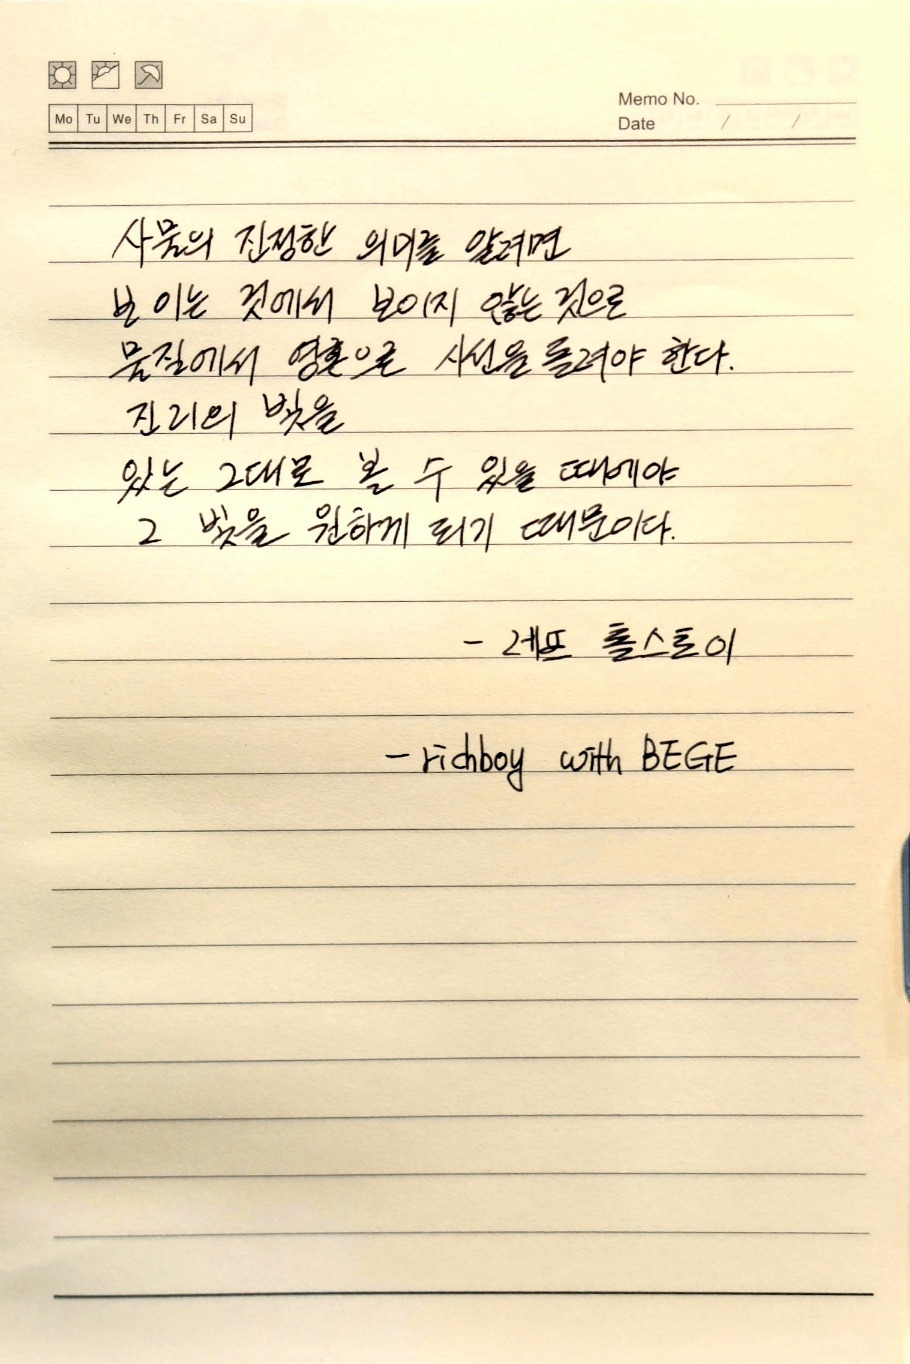 Mo Tu We Th Fr Sa Su
Memo No.
Date / /
사물의 진정한 의미를 알려면
보이는 것에서 보이지 않는 것으로
물질에서 영혼으로 시선을 돌려야 한다.
진리의 빛을
있는 그대로 볼 수 있을 때에야
그 빛을 원하게 되기 때문이다.
- 레프 톨스토이
- richboy with BEGE